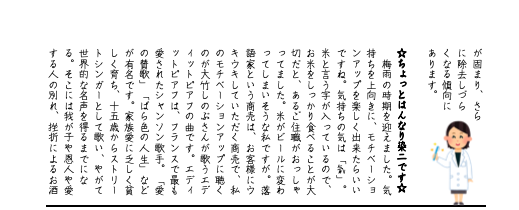 が固まり、さら
に除去しづら
くなる傾向に
あります。
☆ちょっとはんなり染二です☆
　梅雨の時期を迎えました。気
持ちを上向きに、モチベーショ
ンアップを楽しく出来たらいい
ですね。気持ちの気は「氣」。
米と言う字が入っているので、
お米をしっかり食べることが大
切だと、あるご住職がおっしゃ
ってました。米がビールに変わ
ってしまいそうな私ですが。落
語家という商売は、お客様にウ
キウキしていただく商売で、私
のモチベーションアップに聴く
のが大竹しのぶさんが歌うエデ
ィットピアフの曲です。エディ
ットピアフは、フランスで最も
愛されたシャンソン歌手。「愛
の賛歌」「ばら色の人生」など
が有名です。家族愛に乏しく貧
しく育ち、十五歳からストリー
トシンガーとして歌い、やがて
世界的な名声を得るまでにな
る。そこには我が子や恩人や愛
する人の別れ、挫折によるお酒